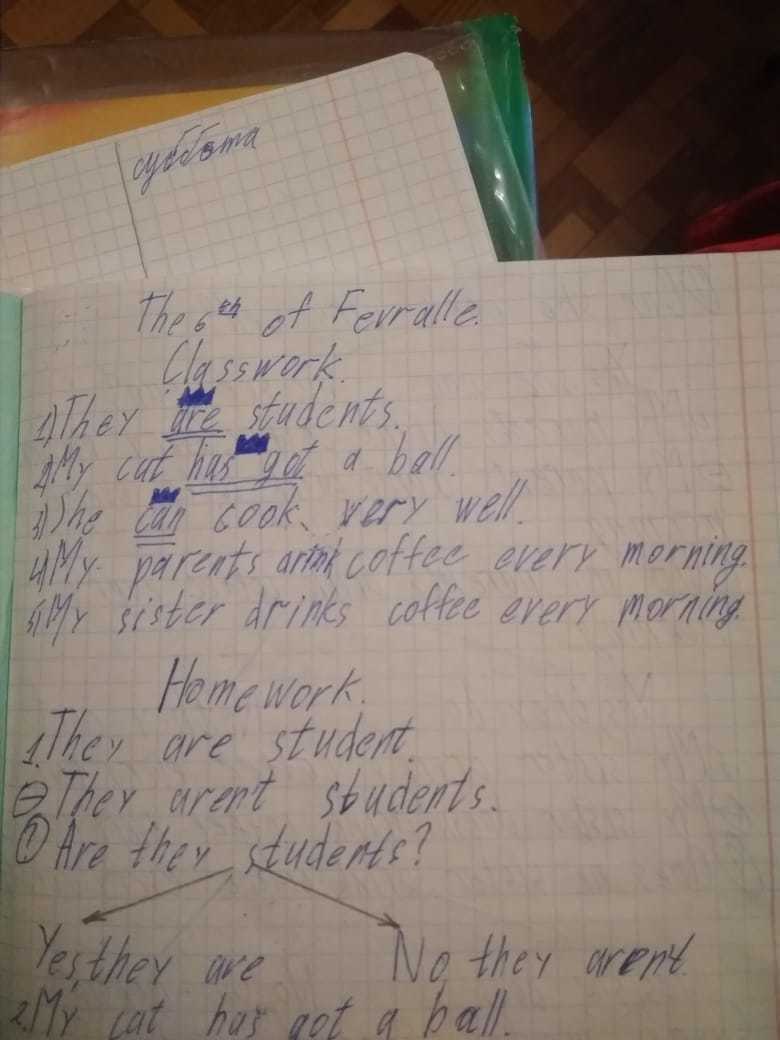 суббота
The 6th of Fevralle.
Classwork.
1) They are students.
2) My cat has got a ball.
3) She can cook very well.
4) My parents drink coffee every morning.
5) My sister drinks coffee every morning.
Homework.
1. They are student.
⊖ They aren't students.
? Are they students?
Yes, they are No, they arent.
2. My cat has got a ball.